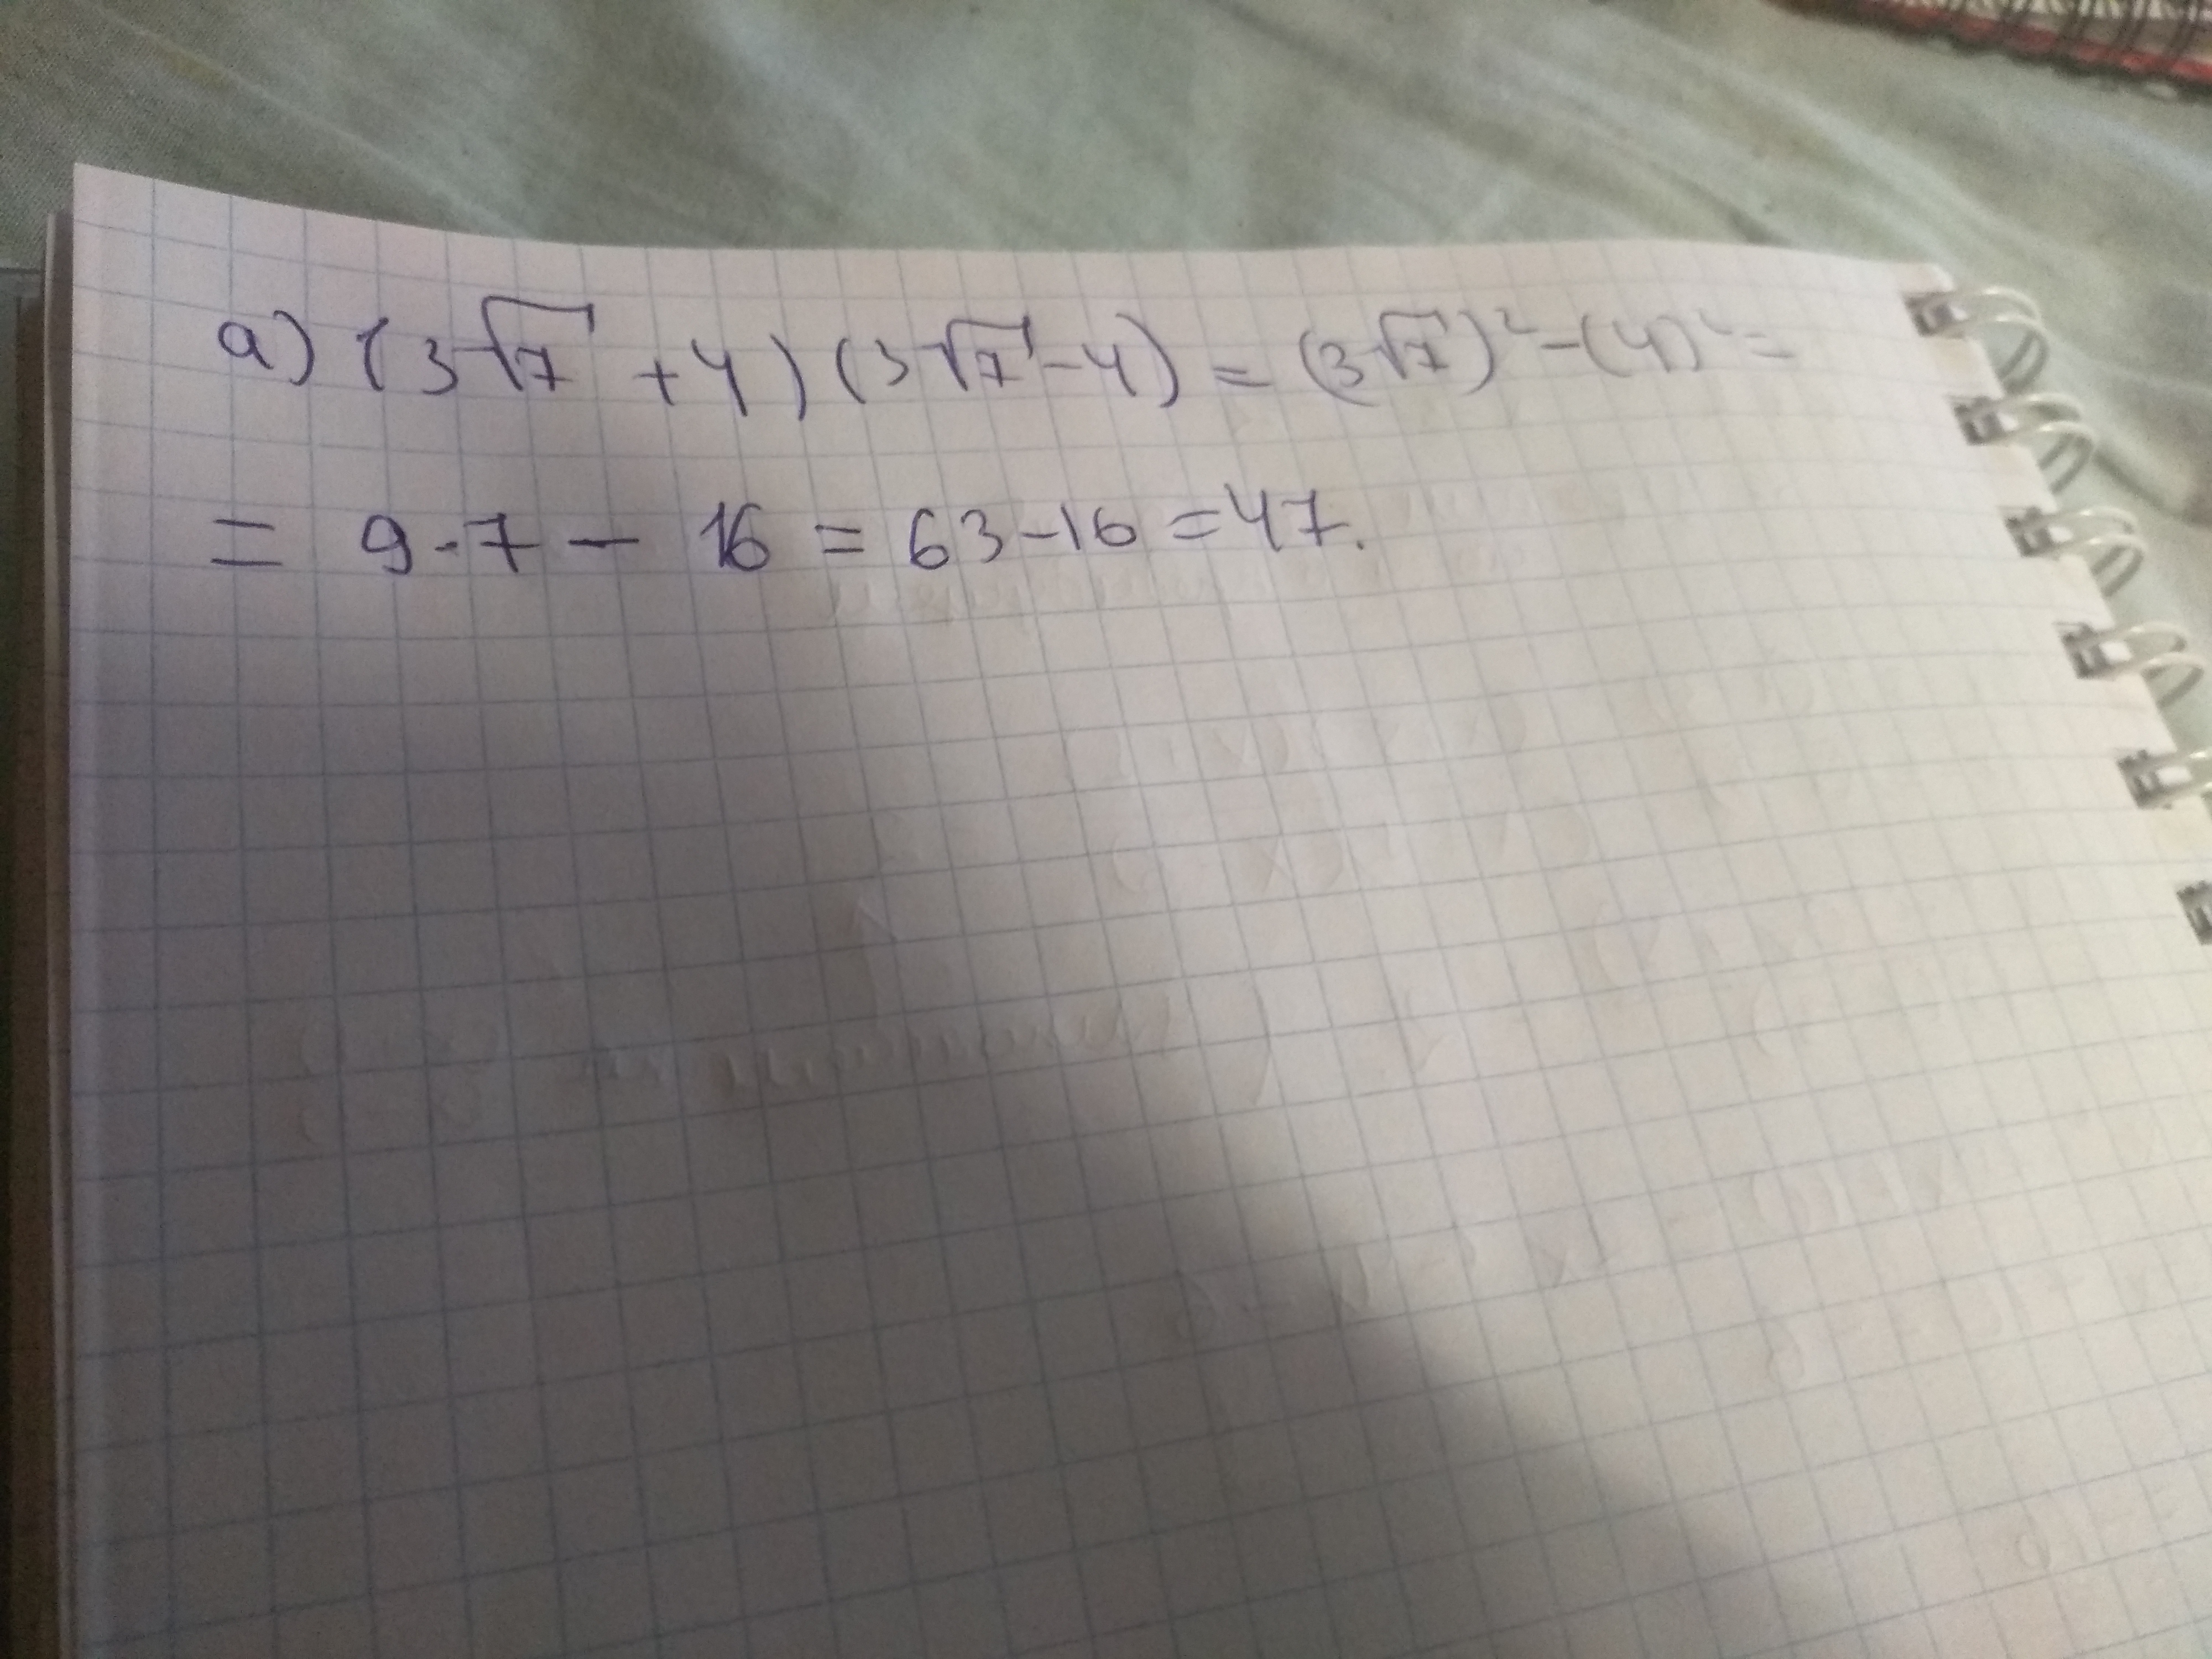 a) (3√7 + 4) (3√7 - 4) = (3√7)² - (4)² =
= 9 · 7 - 16 = 63 - 16 = 47.